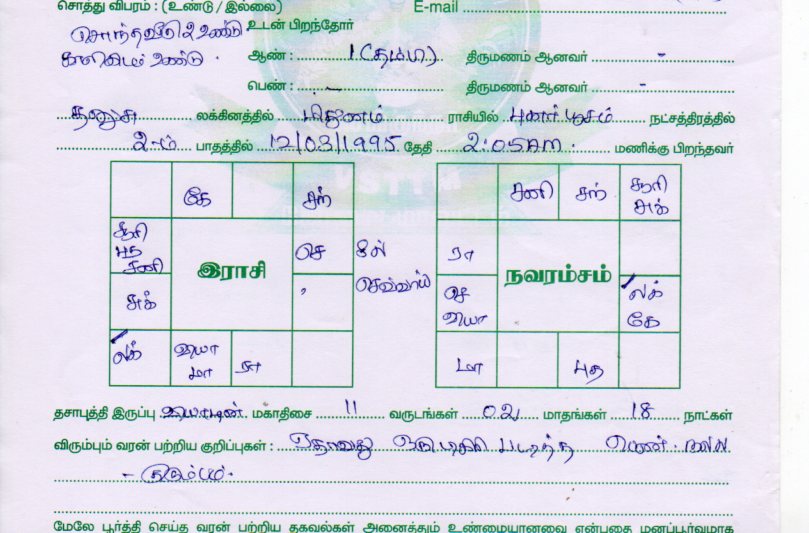 சொத்து விபரம் : (உண்டு / இல்லை) E-mail
சொந்தவீடு 2 உண்டு உடன் பிறந்தோர்
காலியிடம் உண்டு . ஆண் : 1 (தம்பி) திருமணம் ஆனவர் -
பெண் : - திருமணம் ஆனவர் -
தனுசு லக்கினத்தில் மிதுனம் ராசியில் புனர்பூசம் நட்சத்திரத்தில்
2-ம் பாதத்தில் 12/03/1995 தேதி 2:05 AM மணிக்கு பிறந்தவர்
கே சந் சனி சந் சூரி சுக்
சூரி புத சனி இராசி செ 8ல் செவ்வாய் ரா நவரம்சம்
சுக் செ வியா லக் கே
லக் வியா மா ரா மா புத
தசாபுத்தி இருப்பு வியாழன் மகாதிசை 11 வருடங்கள் 02 மாதங்கள் 18 நாட்கள்
விரும்பும் வரன் பற்றிய குறிப்புகள் : ஏதாவது ஒரு டிகிரி படித்த பெண். நல்ல
- குடும்பம்.
மேலே பூர்த்தி செய்த வரன் பற்றிய தகவல்கள் அனைத்தும் உண்மையானவை என்பதை மனப்பூர்வமாக